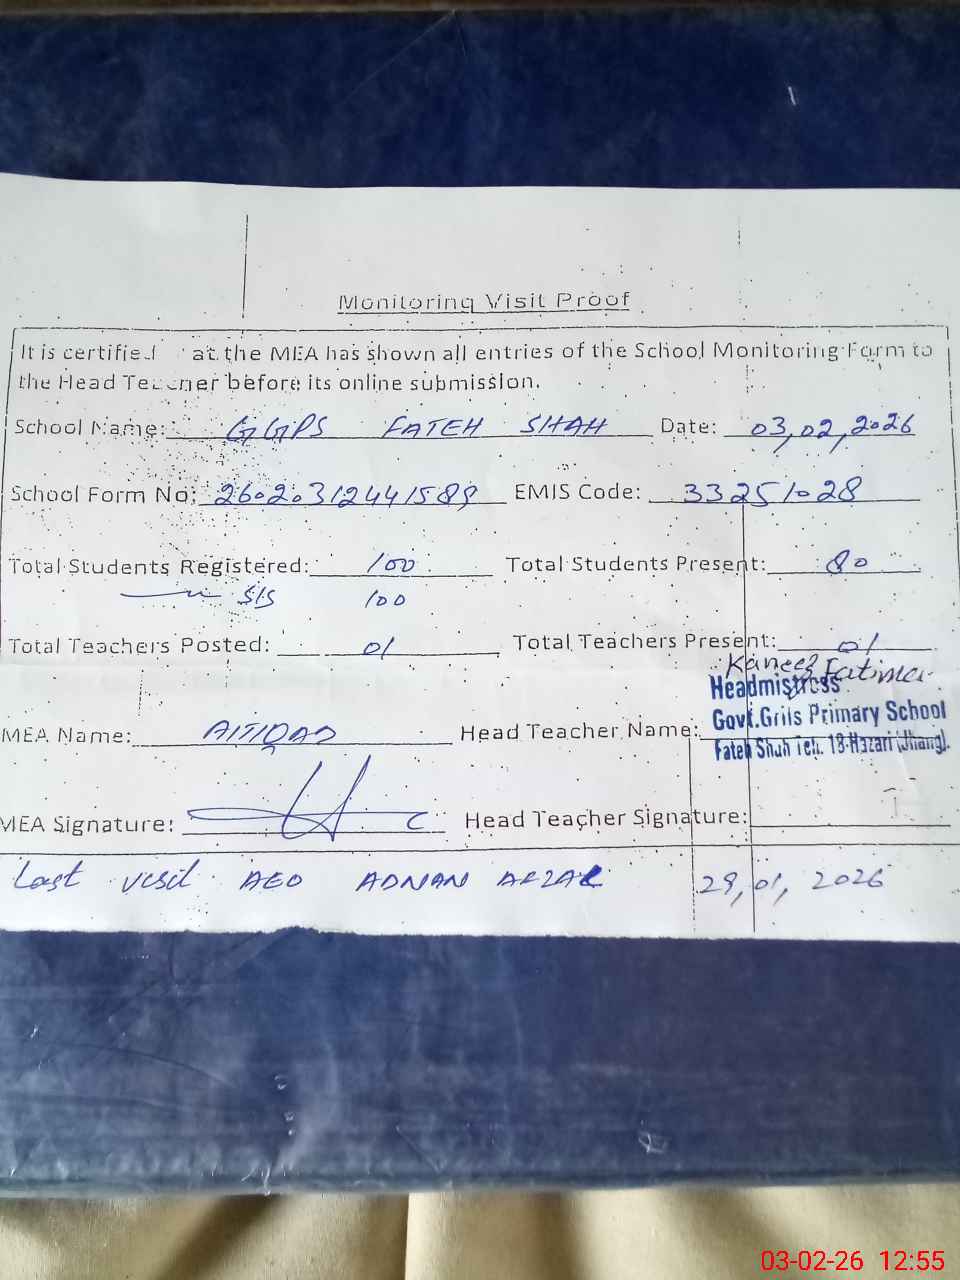 Monitoring Visit Proof
It is certified at the MEA has shown all entries of the School Monitoring Form to
the Head Teacher before its online submission.
School Name: GGPS FATEH SHAH Date: 03,02,2026
School Form No: 2602031244 1589 EMIS Code: 33251028
Total Students Registered: 100 Total Students Present: 80
SIS 100
Total Teachers Posted: 01 Total Teachers Present: 01
Kaneez Fatima
Headmistress
MEA Name: AITIQAD Head Teacher Name: Govt.Grils Primary School
Fateh Shah Teh. 18-Hazari (Jhang).
MEA Signature: Head Teacher Signature:
Last visit AEO ADNAN AFZAL 29,01,2026
03-02-26 12:55